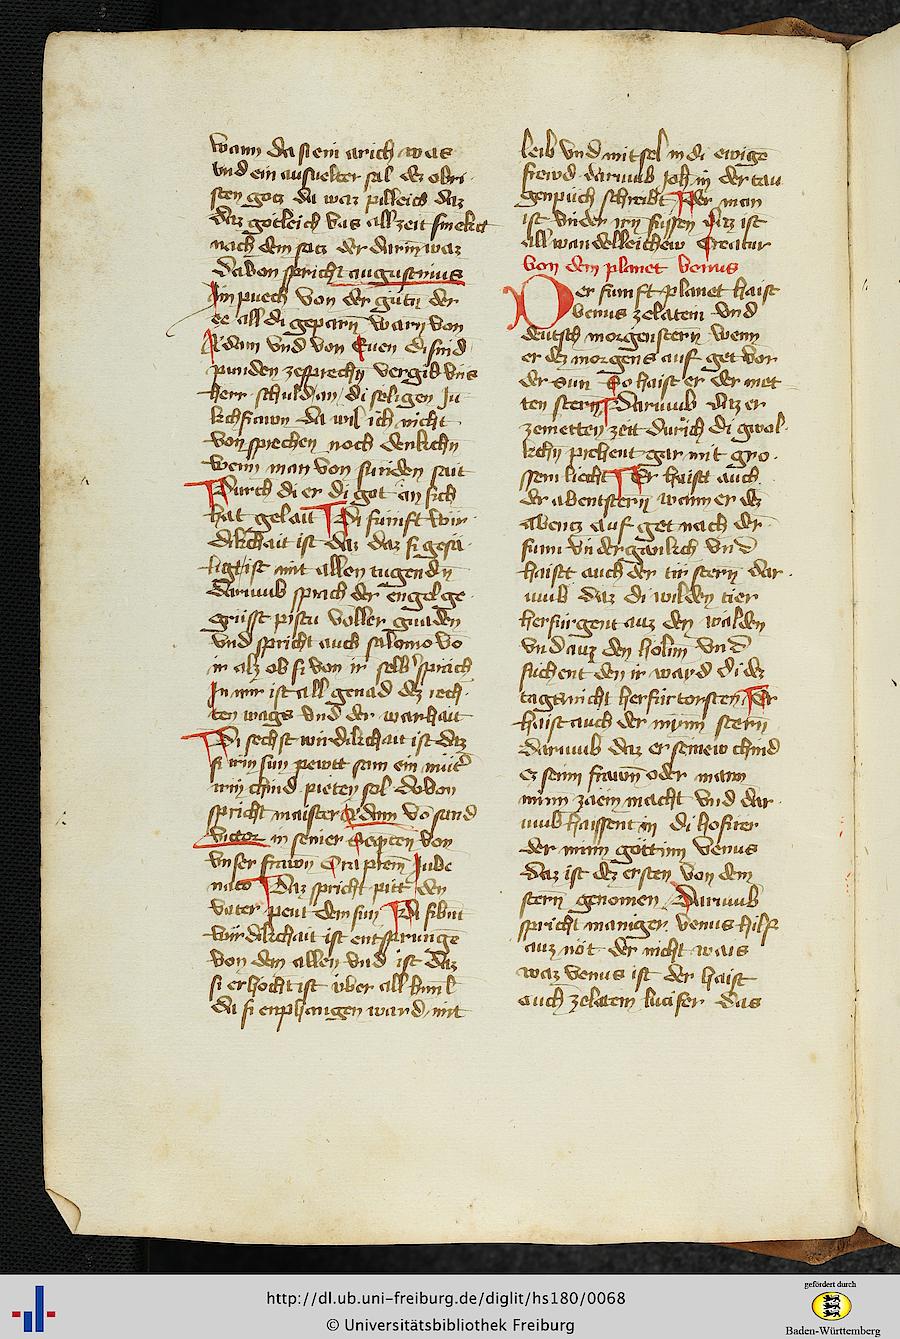 wann da si ein arich was
vnd ein auſuelter ſal dez obri
ſten gotz da waz pilleich daz
daz gotleich vas all zeit ſmekt
nach dem ſatz der darin waz
Dabon ſpricht auguſtinius
Im puech von der gütn der
ee all di geparn warn von
Adam vnd von Euen di ſind
punden zeſprechn vergib vns
herr ſchuldan / di ſeligen Ju
kchfrawn da wil ich nicht
von ſprechen noch denkchn
wenn man von ſunden ſait
Durch di er di got an ſich
hat gelait Di fünft wir
dikchait iſt daz daz ſi geſa
ligt iſt mit allen tugendn
Darumb ſprach der engel ge
grüſſt piſtu voller gnaden
vnd ſpricht auch ſalomo vō
in alz ob ſi von ir ſelb ſprach
In mir iſt all genad dez rech
ten wegs vnd der warhait
Di ſechſt wirdikchait iſt daz
ſi irm ſun pewtt ſam ein mūt
irm chind pieten ſol dobon
ſpricht maiſter Adam vō ſand
victor in ſeiner Sequen von
vnſer frawn Ora prem Jube
nato Daz ſpricht pitt den
vater peut dem ſun Di ſibnt
wirdikchait iſt entſprunge
von den allen vnd iſt daz
ſi erhöcht iſt über all himl
da ſi enphangen ward mit
leib vnd mit ſel in di ewige
frewd darumb Joh in der tau
genpüch ſchreibt Der man
iſt vnder irn füſſen daz iſt
all wandelleichew Creatur
von dem planet venus
Der fümft planet haiſt
venus zelatein vnd
deutſch morgenſtern wenn
er dez morgens auf get vor
der Sun So haiſt er der met
ten ſtern Darumb daz er
zemetten zeit durich di gwol
kchn pichent gar mit gro
ſſem liecht Er haiſt auch
der abentſtern wann er dez
abencz auf get nach der
ſunn vndergankch vnd
haiſt auch der tir ſtern dar
umb daz di wilden tier
herfürgent auz den wälden
vnd auz den holnn vnd
ſuchent den ir ward di dez
tags nicht herfür torſten Er
haiſt auch der mynn ſtern
darumb daz er ſeinew chind
ez ſeinn frawn oder mann
minn zaem macht vnd dar
umb haiſſent in di hofirer
der minn gottinn venus
daz iſt dez erſten von dem
ſtern genomen Darumb
ſpricht maniger venus hilf
auz nöt der nicht wais
waz venus iſt der haiſt
auch zelatein lucifer daz
http://dl.ub.uni-freiburg.de/diglit/hs180/0068
© Universitätsbibliothek Freiburg
gefördert durch
Baden-Württemberg